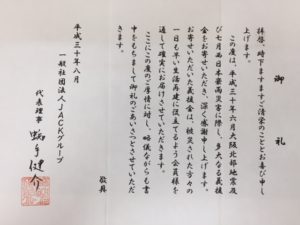 御礼
拝啓、時下ますますご清栄のこととお喜び申し
上げます。
この度は、平成三十年六月大阪北部地震及
び七月西日本豪雨災害に際し、多大なる義援
金をお寄せいただき、深く感謝申し上げます。
お寄せいただいた義援金は、被災された方々の
一日も早い生活再建に役立てるよう会員様を
通して確実にお届けさせていただきます。
ここにこの度のご厚情に対し、略儀ながらも書
中をもちまして御礼のごあいさつとさせていただ
きます。
敬具
平成三十年八月
一般社団法人JACKグループ
代表理事 健介